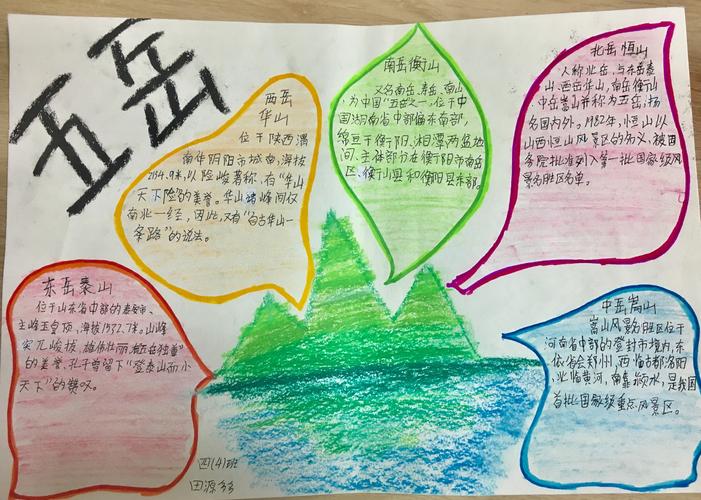 五岳
西岳
华山
位于陕西渭
南华阴阳市城南,海拔
2154.9米,以险峻著称,有“华山
天下险”的美誉。华山诸峰间仅
南北一经,因此,又有“自古华山一
条路”的说法。
南岳衡山
又名南岳、寿岳、南山,
为中国“五岳”之一,位于中
国湖南省中部偏东南部,
绵亘于衡阳、湘潭两盆地
间,主体部分在衡阳市南岳
区、衡山县和衡阳县东部。
北岳恒山
人称北岳,与东岳泰
山、西岳华山、南岳衡山、
中岳嵩山并称为五岳,扬
名国内外。1982年,恒山以
山西恒山风景区的名义,被国
务院批准列入第一批国家级风
景名胜区名单。
东岳泰山
位于山东省中部的泰安市、
主峰玉皇顶,海拔1532.7米。山峰
突兀峻拔,雄伟壮丽,
的美誉、孔子曾留下“登泰山而小
天下”的赞叹。
中岳嵩山
嵩山风景名胜区位于
河南省中部的登封市境内,东
依省会郑州,西临古都洛阳
,北临黄河,南靠颍水,是我国
首批国家级重点风景区。
四(4)班
田源多多